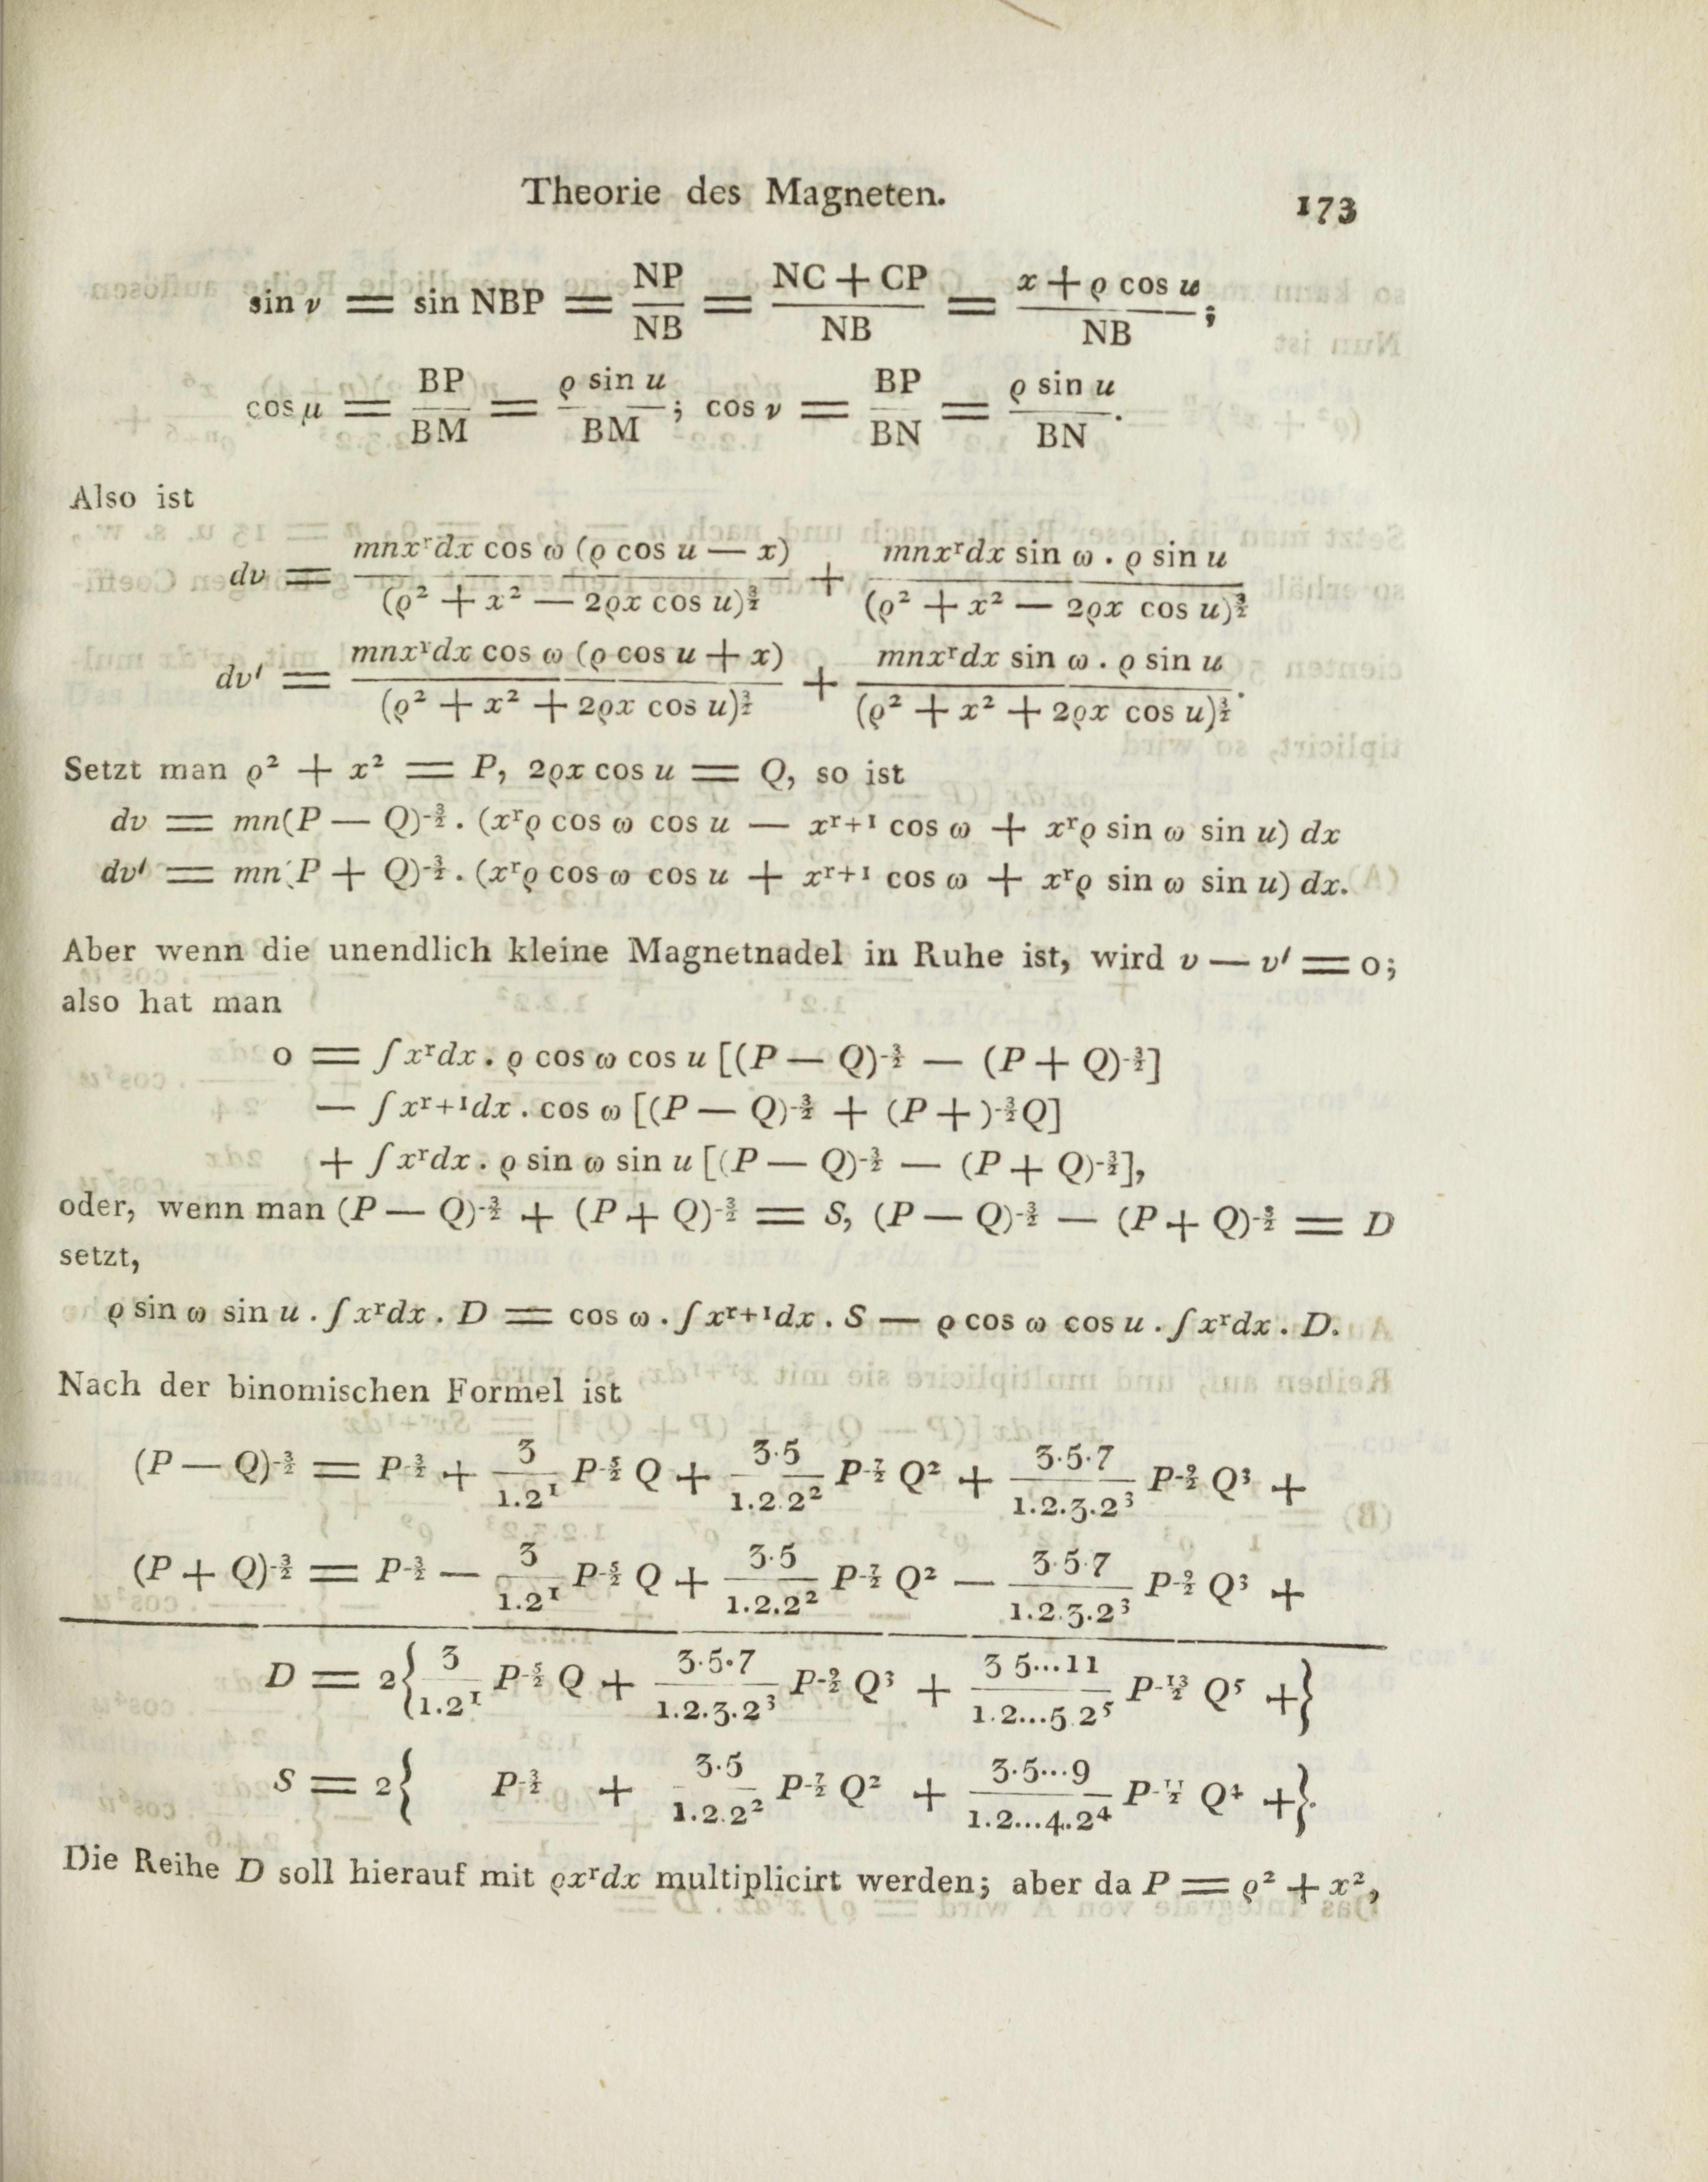 Theorie des Magneten. 173
sin ν = sin NBP = NP/NB = (NC + CP)/NB = (x + ϱ cos u)/NB;
cos μ = BP/BM = (ϱ sin u)/BM; cos ν = BP/BN = (ϱ sin u)/BN.
Also ist
dv = (mnx^r dx cos ω (ϱ cos u — x))/((ϱ² + x² — 2ϱx cos u)^{3/2}) + (mnx^r dx sin ω . ϱ sin u)/((ϱ² + x² — 2ϱx cos u)^{3/2})
dv′ = (mnx^r dx cos ω (ϱ cos u + x))/((ϱ² + x² + 2ϱx cos u)^{3/2}) + (mnx^r dx sin ω . ϱ sin u)/((ϱ² + x² + 2ϱx cos u)^{3/2}).
Setzt man ϱ² + x² = P, 2ϱx cos u = Q, so ist
dv = mn(P — Q)^{-3/2} . (x^r ϱ cos ω cos u — x^{r+1} cos ω + x^r ϱ sin ω sin u) dx
dv′ = mn(P + Q)^{-3/2} . (x^r ϱ cos ω cos u + x^{r+1} cos ω + x^r ϱ sin ω sin u) dx.
Aber wenn die unendlich kleine Magnetnadel in Ruhe ist, wird v — v′ = 0;
also hat man
0 = ∫x^r dx . ϱ cos ω cos u [(P — Q)^{-3/2} — (P + Q)^{-3/2}]
— ∫x^{r+1} dx . cos ω [(P — Q)^{-3/2} + (P + )^{-3/2}Q]
+ ∫x^r dx . ϱ sin ω sin u [(P — Q)^{-3/2} — (P + Q)^{-3/2}],
oder, wenn man (P — Q)^{-3/2} + (P + Q)^{-3/2} = S, (P — Q)^{-3/2} — (P + Q)^{-3/2} = D
setzt,
ϱ sin ω sin u . ∫x^r dx . D = cos ω . ∫x^{r+1} dx . S — ϱ cos ω cos u . ∫x^r dx . D.
Nach der binomischen Formel ist
(P — Q)^{-3/2} = P^{-3/2} + 3/(1.2¹) P^{-5/2} Q + 3·5/(1.2.2²) P^{-7/2} Q² + 3·5·7/(1.2.3.2³) P^{-9/2} Q³ +
(P + Q)^{-3/2} = P^{-3/2} — 3/(1.2¹) P^{-5/2} Q + 3·5/(1.2.2²) P^{-7/2} Q² — 3·5·7/(1.2.3.2³) P^{-9/2} Q³ +
D = 2{3/(1.2¹) P^{-5/2} Q + 3·5·7/(1.2.3.2³) P^{-9/2} Q³ + 3 5...11/(1.2...5.2⁵) P^{-13/2} Q⁵ +}
S = 2{ P^{-3/2} + 3·5/(1.2.2²) P^{-7/2} Q² + 3·5...9/(1.2...4.2⁴) P^{-11/2} Q⁴ +}.
Die Reihe D soll hierauf mit ϱx^r dx multiplicirt werden; aber da P = ϱ² + x²,